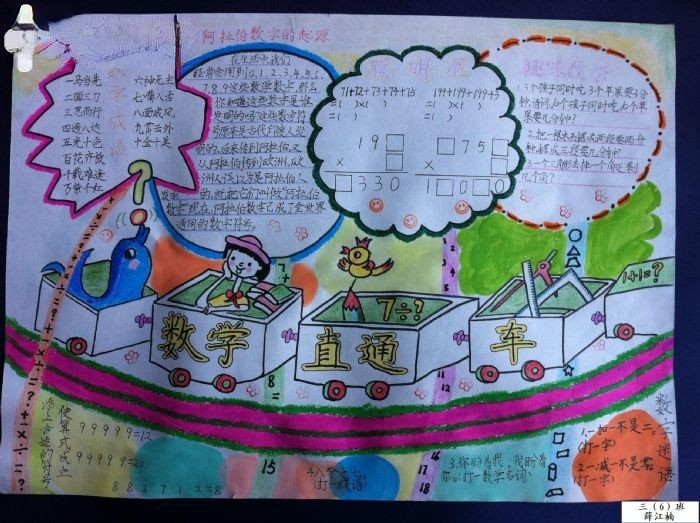 阿拉伯数字的起源
数字成语
一马当先 六神无主
二面三刀 七嘴八舌
三思而行 八面威风
四通八达 九霄云外
五光十色 十全十美
百花齐放
千载难逢
万紫千红
在生活中我们
经常会用到0、1、2、3、4、5、6、
7、8、9这些数字
你知道这些数字是谁
发明的吗?这些数字符
号原来是古代印度人发
明的,后来传到阿拉伯,又
从阿拉伯传到欧洲,欧
洲人误以为是阿拉伯人
发明的,就把它们叫做“阿拉伯
数字”现在,阿拉伯数字已成了全世界
通用的数字符号。
聪明屋
71+72+73+74+75 199+199+199+3
=( )×( ) =( )×( )
=( ) =( )
19□ □75□
×□ ×□
□330 1□0□0
趣味数学
1.3个孩子同时吃3个苹果要3分
钟,请问,10个孩子同时吃10个苹
果要几分钟?
2.把一根木头锯成两段要两分
钟,锯成三段要几分钟?
3.一个三角形去掉一个角还剩
几个角?
7÷?
1+1=?
数学直通车
添上合适的符号
使算式成立
9 9 9 9 9=12
9 9 9 9 9=20
8 8 2 7 2 1 2=8
4.八分之七。
(打一成语)
3.你盼着我,我盼着
你。(打一数学名词)
数字谜语
1.一加一不是二。
(打一字)
2.一减一不是零。
(打一字)
三(6)班
薛江楠